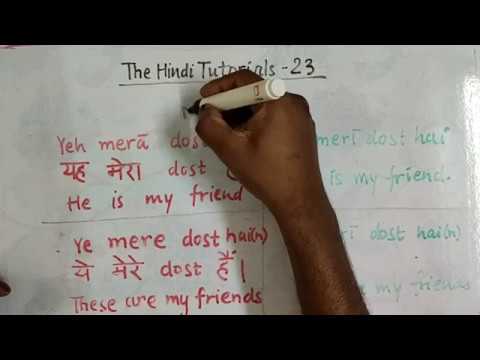 The Hindi Tutorials - 23
Yeh merā dost
यह मेरा dost
He is my friend
merī dost hai
is my friend.
Ye mere dost hai(n)
ये मेरे dost हैं।
These are my friends
dost hai(n)
my friends